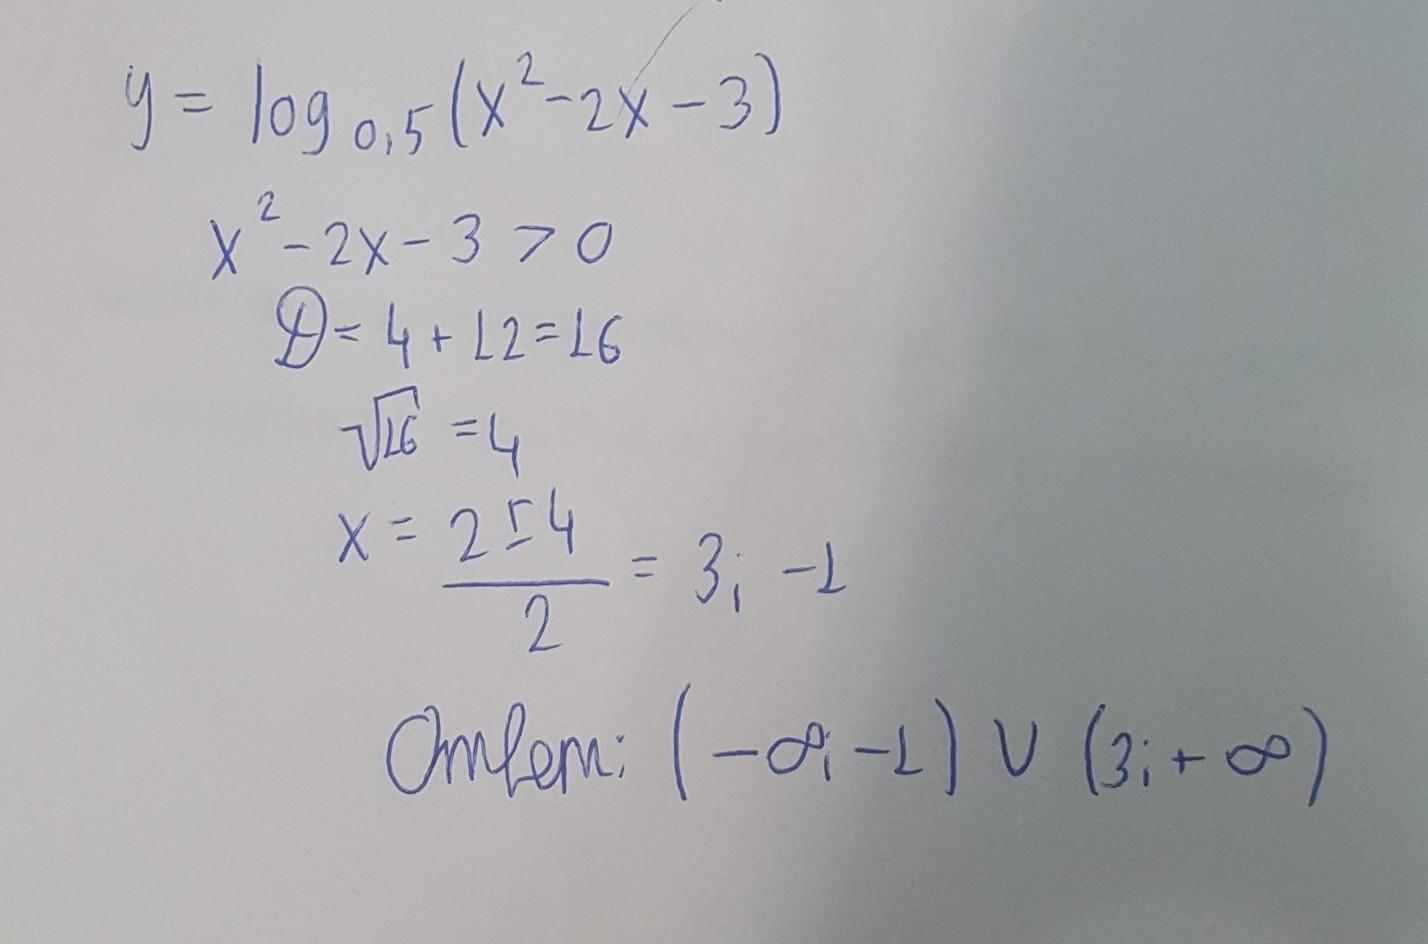 y = log₀,₅(x² - 2x - 3)
x² - 2x - 3 > 0
D = 4 + 12 = 16
√16 = 4
x = (2 ± 4)/2 = 3; -1
Ответ: (-∞; -1) ∪ (3; +∞)